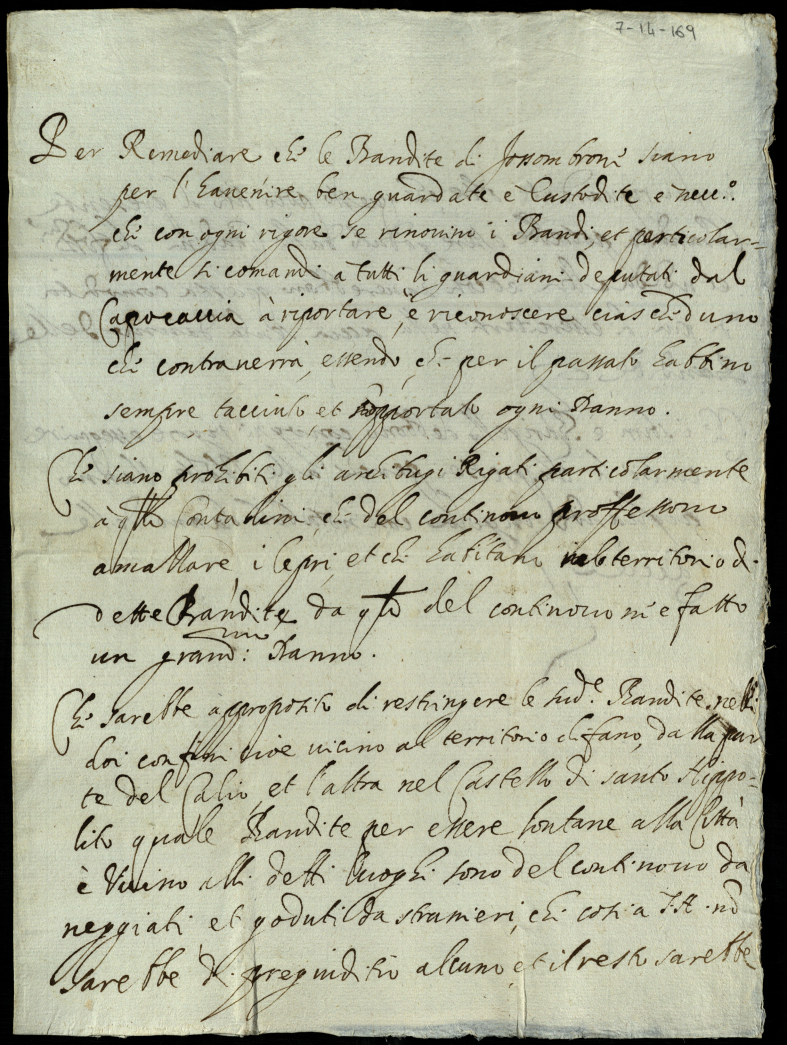 7-14-169
Per Remediare che le Bandite di Fossombrone siano
per l'havenire ben guardate è Custodite è necc.º
che con ogni rigore se rinovino i Bandi, et particolar=
mente si comandi à tutti li guardiani deputati dal
Capocaccia à riportare, è riconoscere ciascheduno
che contraverrà, essendo, che per il passato habbino
sempre tacciuto, et sopportato ogni danno.
Che siano prohibiti gli archibugi Rigati particolarmente
à q̃lli Contadini, che del continovo proffessono
amallare i lepri, et che habitano nel territorio di
dette Bandite da q̃li del continovo ni è fatto
un grand.mo danno.
Che sarebbe approposito di restringere le sud.e Bandite nelli
doi confini cioè vicino al territorio di fano, dalla par
te del Calio, et l'altra nel Castello di santo Hippo=
lito quale Bandite per essere lontane alla Città
è Vicino alli detti luoghi sono del continovo da
neggiati et goduti da stranieri, che cosi a S.A. nõ
sarebbe di pregiuditio alcuno, et il resto sarebbe